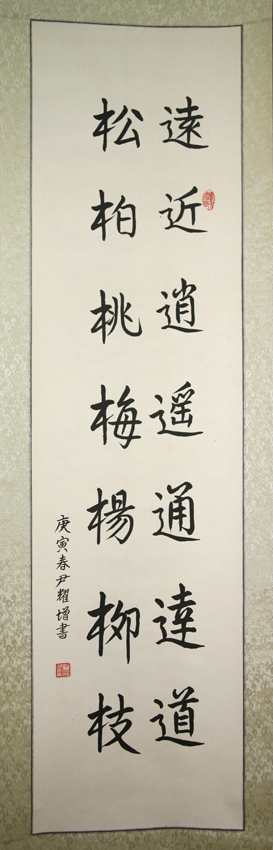 遠近逍遥通達道
松柏桃梅楊柳枝
庚寅春尹耀增書